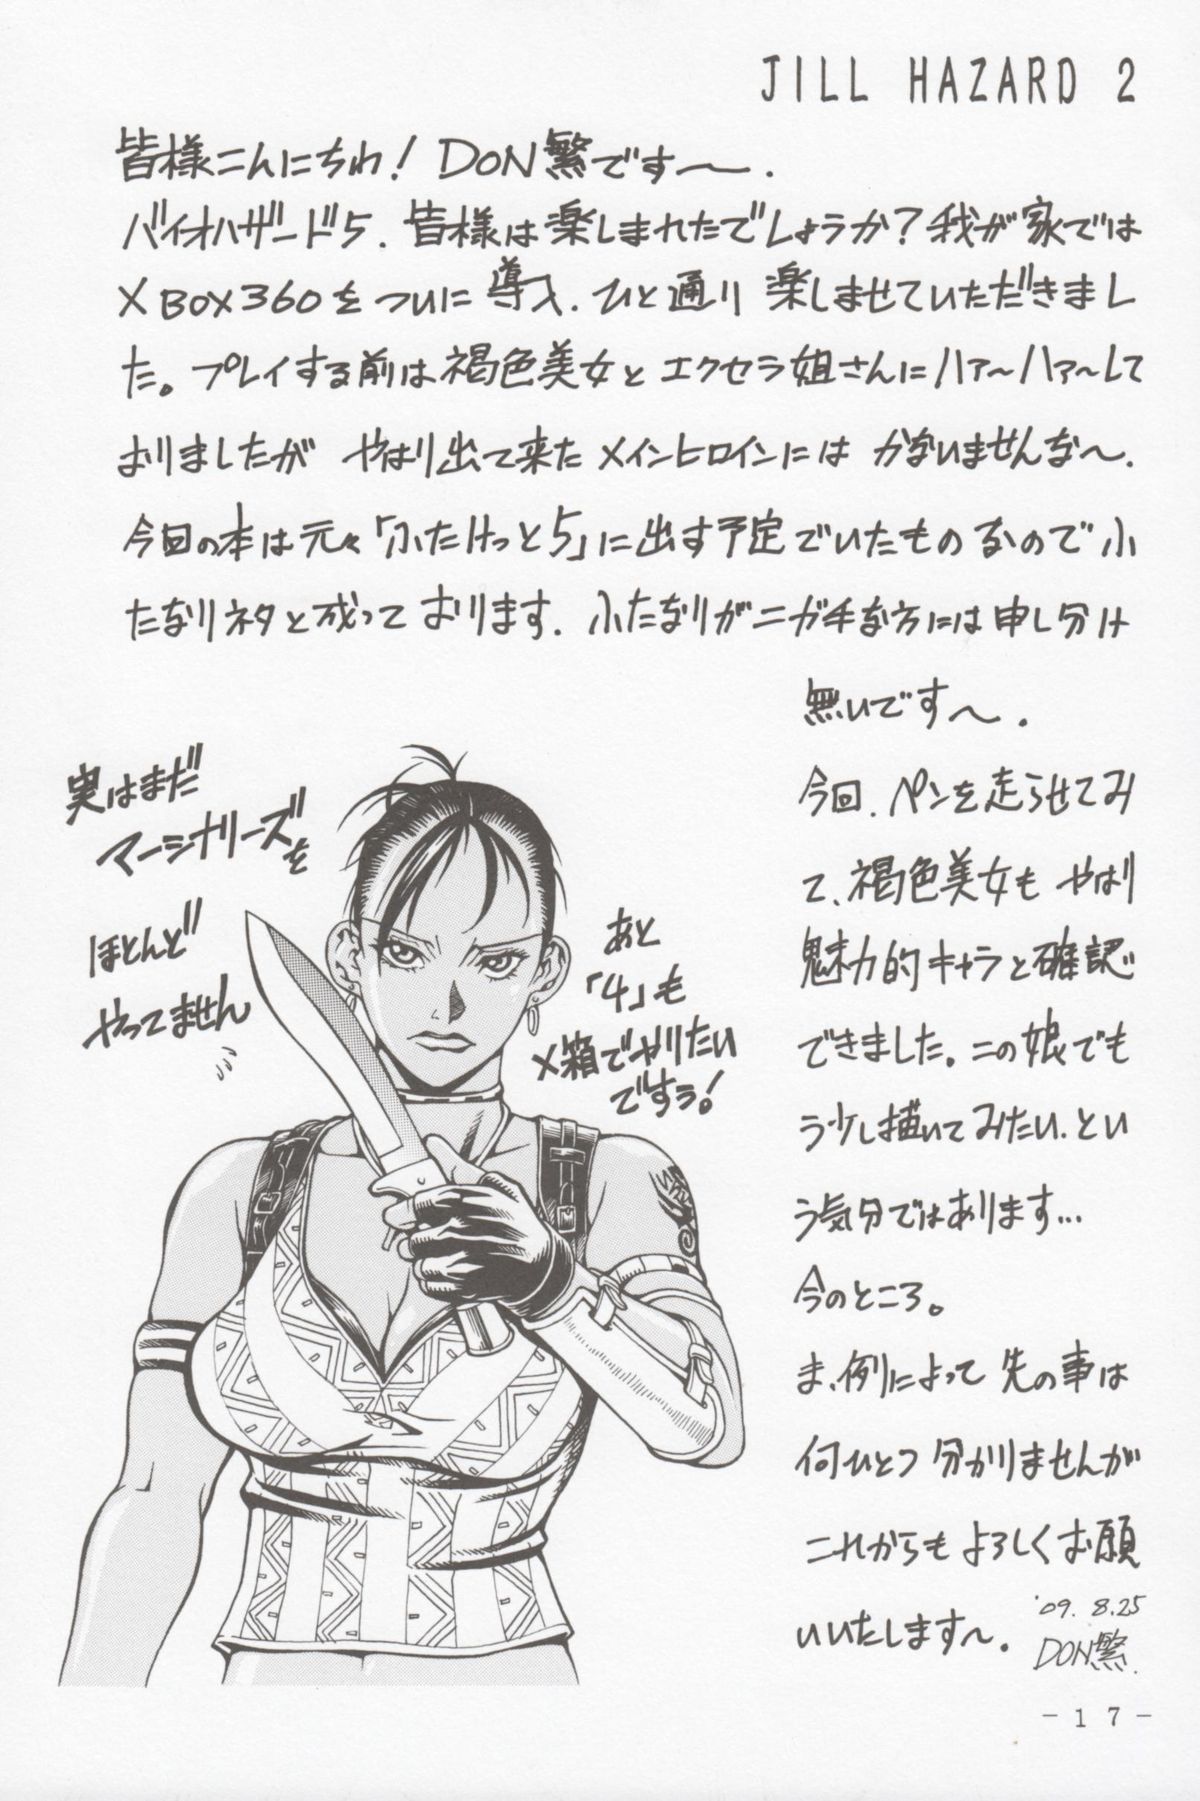 JILL HAZARD 2
皆様こんにちわ! DON繁です〜.
バイオハザード5. 皆様は楽しまれたでしょうか?我が家では
XBOX360をついに導入. ひと通り 楽しませていただきまし
た。プレイする前は褐色美女とエクセラ姐さんにハァ〜ハァ〜して
おりましたが やはり出て来たメインヒロインには かないませんな〜.
今回の本は元々「ふたけっと5」に出す予定でいたものなので ふ
たなりネタと成っております. ふたなりがニガ手な方には申し分け
無いです〜.
今回. ペンを走らせてみ
て、褐色美女も やはり
魅力的キャラと確認
できました。この娘でも
う少し描いてみたい. とい
う気分ではあります...
今のところ。
ま、例によって 先の事は
何ひとつ 分かりませんが
これからも よろしくお願
いいたします〜.
'09. 8.25
DON繁.
実はまだ
マーシナリーズを
ほとんど
やってません
あと
「4」も
X箱でやりたい
ですう!
-17-